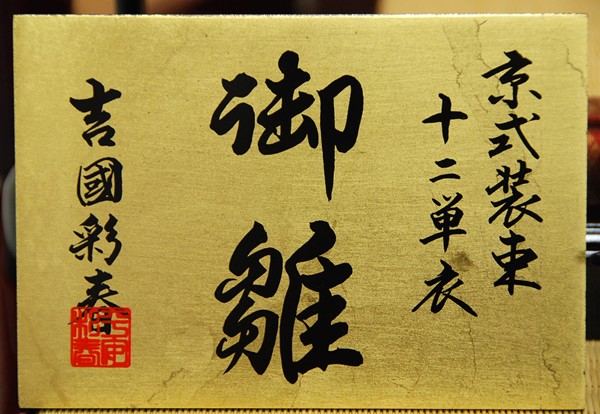 京式装束
十二単衣
御雛
吉國彩春